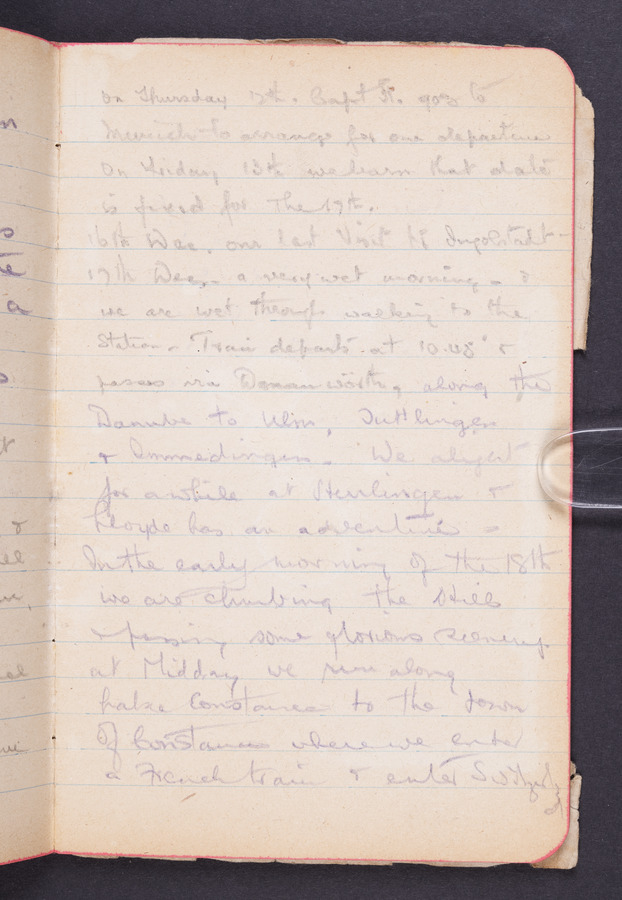 On Thursday 12th. Capt H. goes to
Munich to arrange for our departure
On Friday 13th we learn that date
is fixed for the 17th.
16th Dec. our last Visit to Ingolstadt -
17th Dec. - a very wet morning - &
we are wet through walking to the
Station - Train departs at 10.45 &
passes via Donauwörth, along the
Danube to Ulm, Tuttlingen
& Immedingen - We alight
for awhile at &
Lloyde has an adventure -
In the early morning of the 18th
we are climbing the Hills
& passing some glorious scenery
at Midday we run along
Lake Constance to the town
Of Constance where we enter
a French train & enter Switzerld